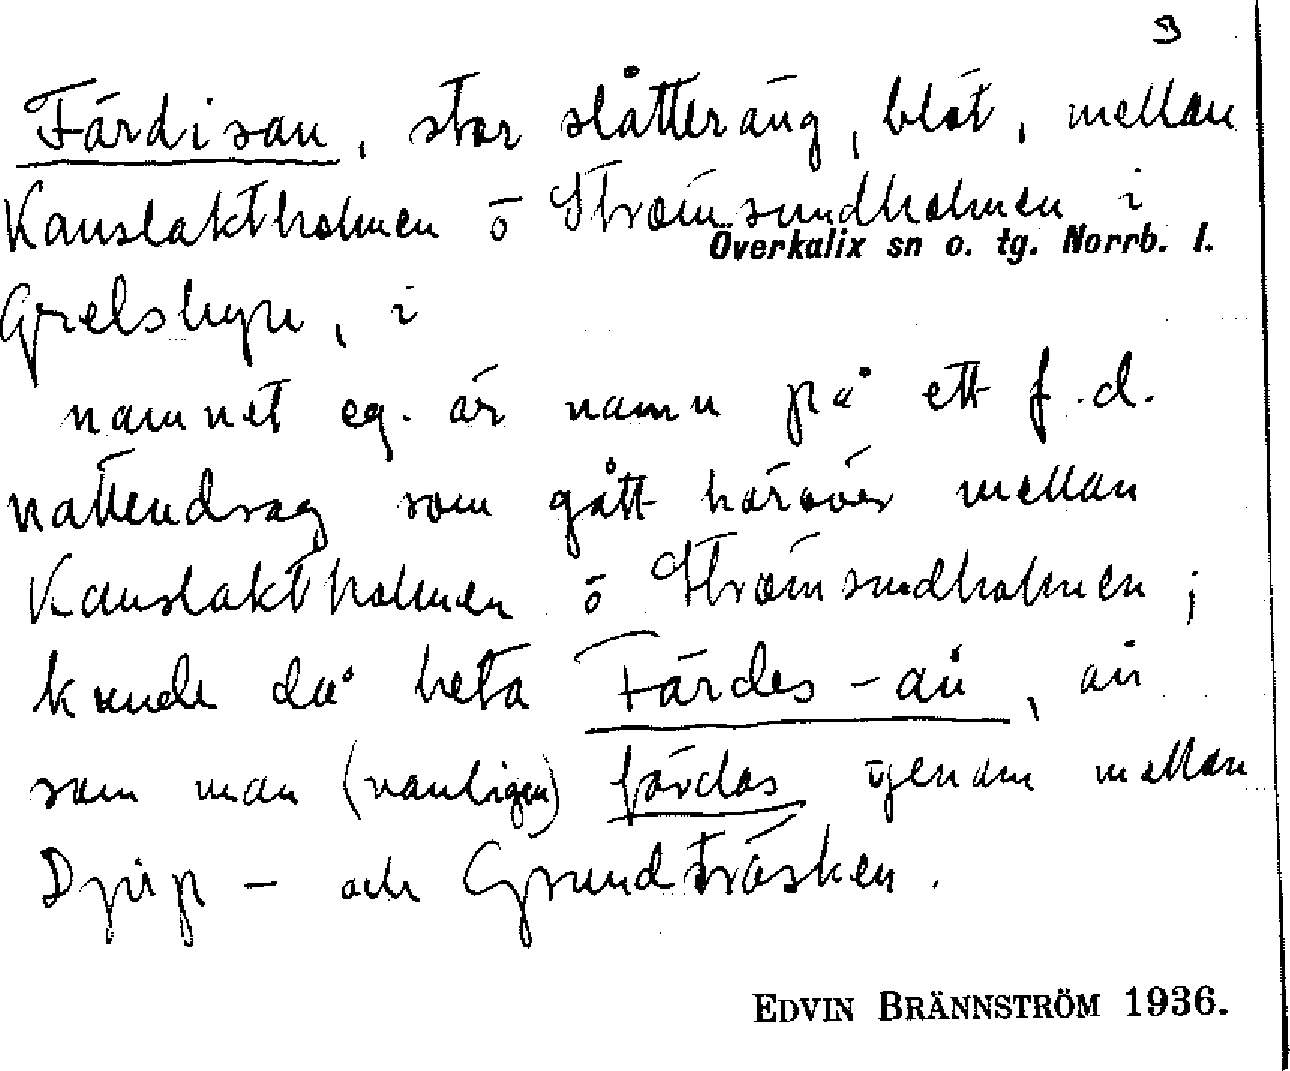 3
Färdisan, stor slåtteräng, blöt, mellan
Kanslaktholmen o Strömsundholmen i
Överkalix sn o. tg. Norrb. l.
Grelsbyn, i
namnet eg. är namn på ett f.d.
vattendrag som gått häröver mellan
Kanslaktholmen o Strömsundholmen;
kunde då heta Färdes-ån, ån
som man (vanligen) färdas igenom mellan
Djup- och Grundträsken.
EDVIN BRÄNNSTRÖM 1936.